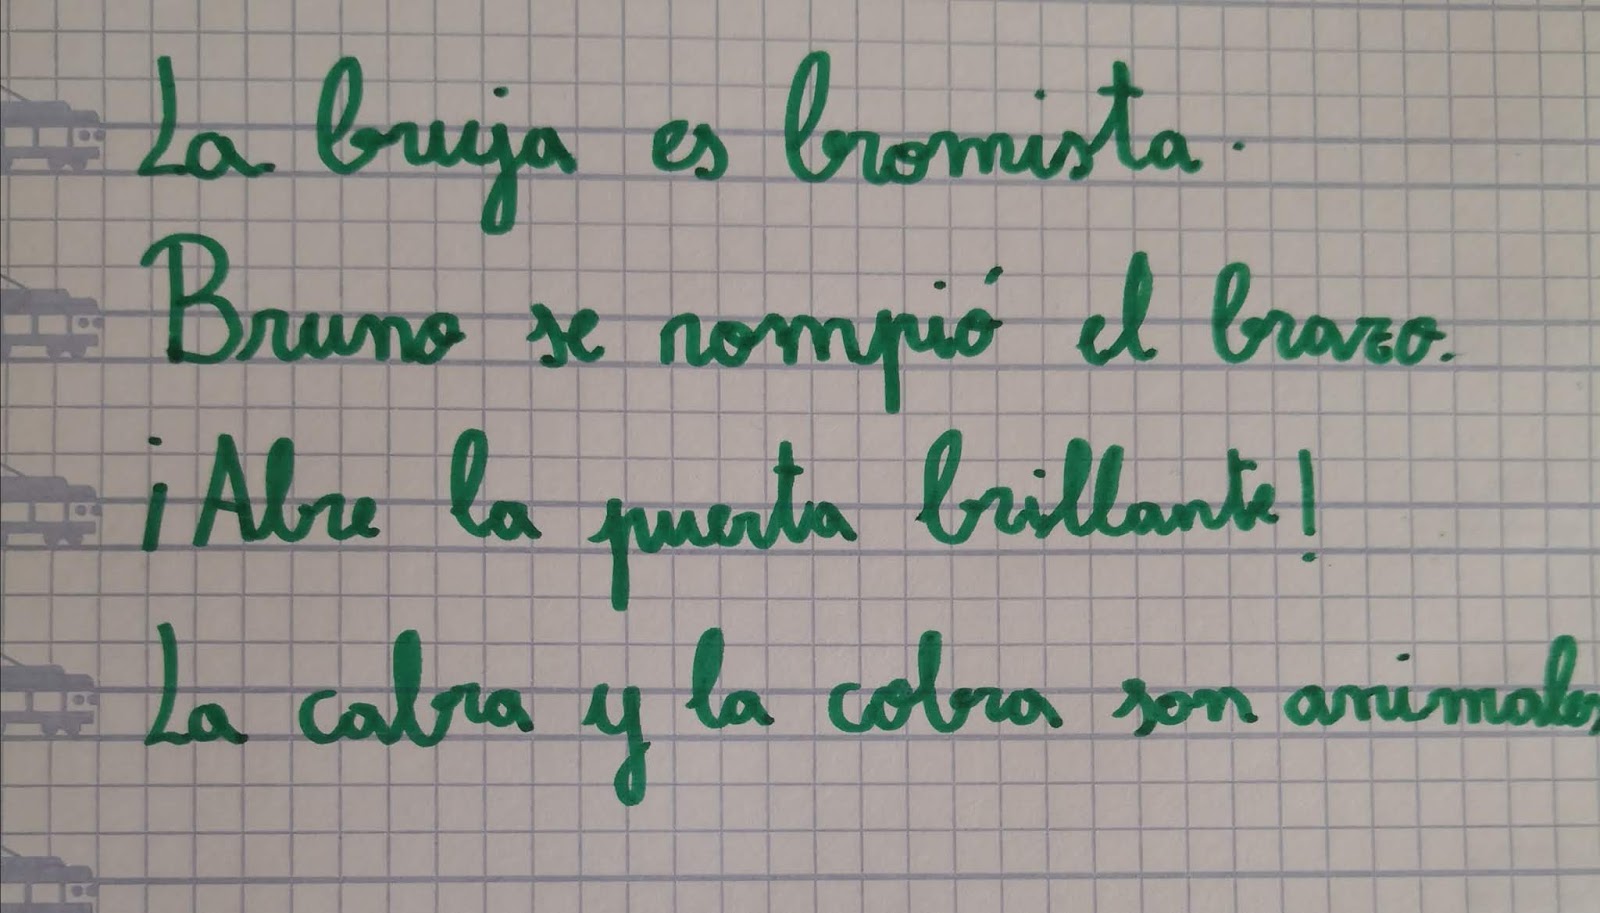 La bruja es bromista.
Bruno se rompió el brazo.
¡Abre la puerta brillante!
La cabra y la cobra son animales